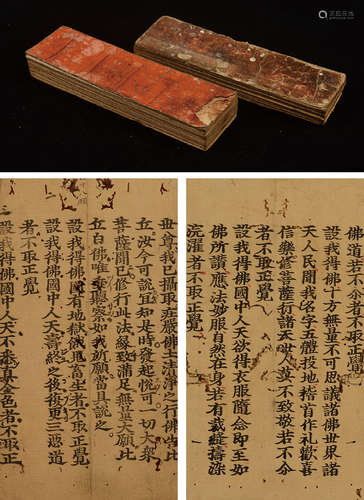 世尊我已攝取莊嚴佛土清淨之行佛告比
丘汝今可說宜知是時發起悅可一切大衆
菩薩聞已修行此法緣致滿足無量大願比
丘白佛唯垂聽察如我所願當具說之
設我得佛國有地獄餓鬼畜生者不取正覺
設我得佛國中人天壽終之後復更三惡道
者不取正覺
設我得佛國中人天不悉真金色者不取正
佛道者不取正覺
設我得佛十方無量不可思議諸佛世界諸
天人民聞我名字五體投地稽首作礼歡喜
信樂修菩薩行諸天世人莫不致敬若不尒
者不取正覺
設我得佛國中人天欲得衣服隨念即至如
佛所讚應法妙服自然在身若有裁縫擣染
浣濯者不取正覺